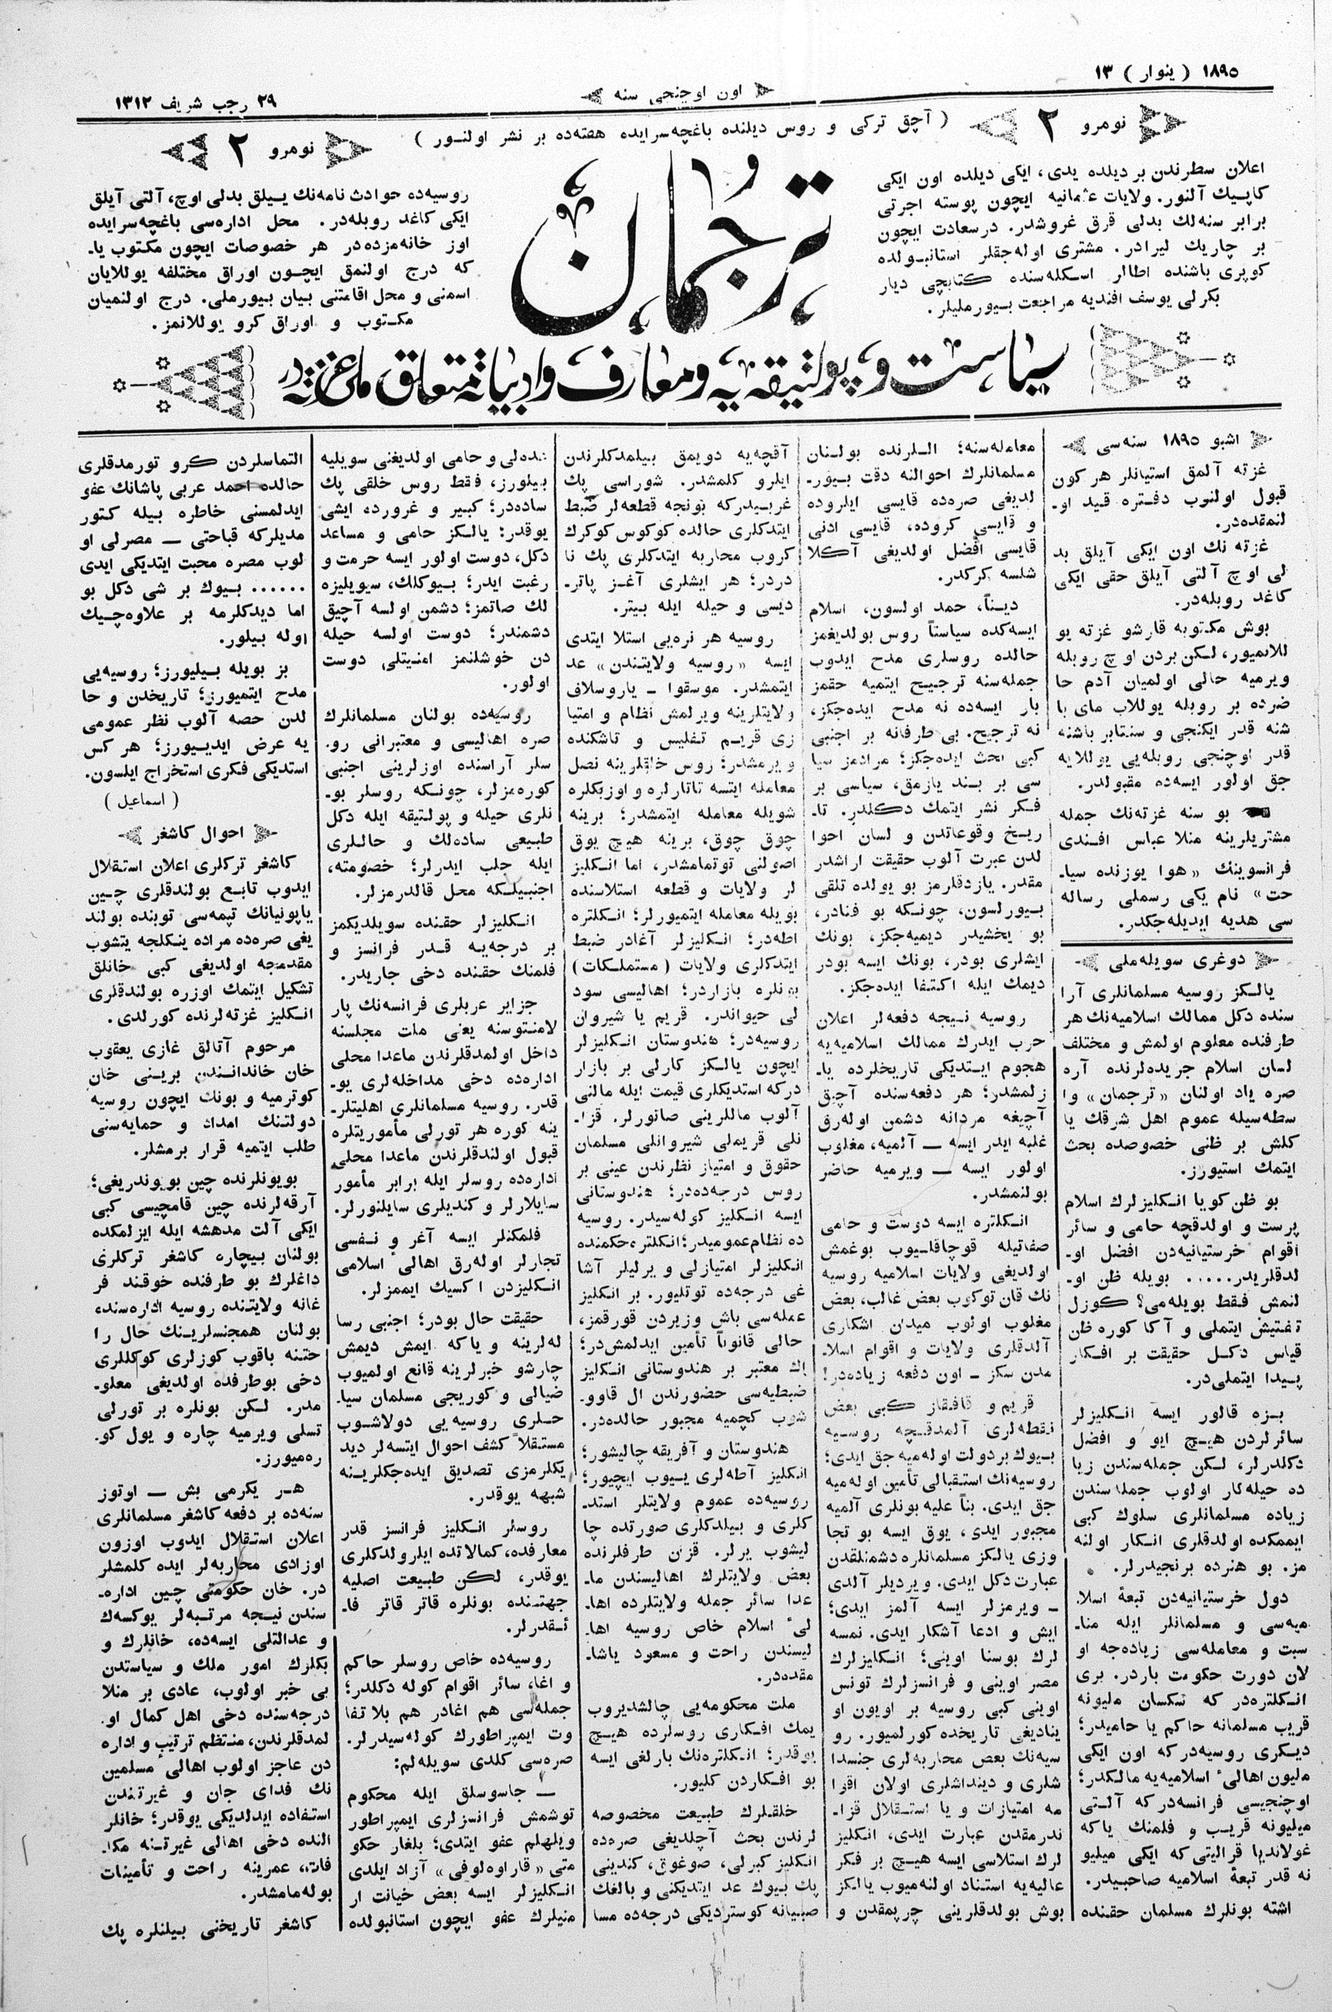 ١٨٩٥ ( ینوار ) ١٣
اون اوچنجی سنه
٢٩ رجب شریف ١٣١٢
نومرو ٢
( آچق ترکی و روس دیلنده باغچه‌سرایده هفته‌ده بر نشر اولنور )
نومرو ٢
اعلان سطرندن بر دیلده یدی، ایکی دیلده اون ایکی
کاپیك آلنور. ولایات عثمانیه ایچون پوسته اجرتی
برابر سنه‌لك بدلی قرق غروشدر. درسعادت ایچون
بر چاریك لیرادر. مشتری اوله‌جقلر استانبولده
کوپری باشنده اطالر اسکله‌سنده کتابچی دیار
بکرلی یوسف افندیه مراجعت بیورملیلر.
ترجمان
روسیه‌ده حوادث نامه‌نك ییلق بدلی اوچ، آلتی آیلق
ایکی کاغد روبله‌در. محل اداره‌سی باغچه‌سرایده
اوز خانه‌مزده‌در هر خصوصات ایچون مکتوب یا۔
که درج اولنمق ایچون اوراق مختلفه یوللایان
اسمنی و محل اقامتنی بیان بیورملی. درج اولنمیان
مکتوب و اوراق کرو یوللانمز.
سیاست و پولتیقه‌یه و معارف و ادبیاته متعلق ملی غزته‌در
اشبو ١٨٩٥ سنه‌سی
غزته آلمق استیانلر هرکون
قبول اولنوب دفتره قید او۔
لنمقده‌در.
غزته‌نك اون ایکی آیلق بد
لی اوچ آلتی آیلق حقی ایکی
کاغد روبله‌در.
بوش مکتوبه قارشو غزته یو
للانمیور، لکن بردن اوچ روبله
ویرمیه حالی اولمیان آدم حا
ضرده بر روبله یوللاب مای با
شنه قدر ایکنجی و سنتابر باشنه
قدر اوچنجی روبله‌یی یوللایه
جق اولور ایسه‌ده مقبولدر.
بو سنه غزته‌نك جمله
مشتریلرینه منلا عباس افندی
فرانسوینك «هوا یوزنده سیا۔
حت» نام یکی رسملی رساله
سی هدیه ایدیله‌جکدر.
دوغری سویله‌ملی
یالکز روسیه مسلمانلری آرا
سنده دکل ممالك اسلامیه‌نك هر
طرفنده معلوم اولمش و مختلف
لسان اسلام جریده‌لرنده آره
صره یاد اولنان «ترجمان» وا
سطه‌سیله عموم اهل شرقك یا
کلش بر ظنی خصوصده بحث
ایتمك استیورز.
بو ظن کویا انکلیزلرك اسلام
پرست و اولدقچه حامی و سائر
اقوام خرستیانیه‌دن افضل او۔
لدقلریدر..... بویله ظن او۔
لنمش فقط بویله‌می؟ کوزل
تفتیش ایتملی و آکا کوره ظن
قیاس دکل حقیقت بر افکار
پیدا ایتملی‌در.
بزه قالور ایسه انکلیزلر
سائرلردن هیچ ایو و افضل
دکلدرلر، لکن جمله‌سندن زیا
ده حیله‌کار اولوب جمله‌سندن
زیاده مسلمانلری سلوك کبی
ایممکده اولدقلری انکار اولنه
مز. بو هنرده برنجیدرلر.
دول خرستیانیه‌دن تبعهٔ اسلا
میه‌سی و مسلمانلر ایله منا۔
سبت و معامله‌سی زیاده‌جه او
لان دورت حکومت باردر. بری
انکلتره‌در که سکسان ملیونه
قریب مسلمانه حاکم یا حامیدر؛
دیکری روسیه‌درکه اون ایکی
ملیون اهالیٔ اسلامیه‌یه مالکدر؛
اوچنجیسی فرانسه‌درکه آلتی
میلیونه قریب و فلمنك یاکه
غولاندیا قرالیتی‌که ایکی میلیو
نه قدر تبعهٔ اسلامیه صاحبیدر.
اشته بونلرك مسلمان حقنده
معامله‌سنه؛ اللرنده بولنان
مسلمانلرك احوالنه دقت بیور۔
لدیغی صره‌ده قایسی ایلروده
و قایسی کروده، قایسی ادنی
قایسی أفضل اولدیغی آکلا
شلسه کرکدر.
دیناً، حمد اولسون، اسلام
ایسه‌کده سیاستاً روس بولدیغمز
حالده روسلری مدح ایدوب
جمله‌سنه ترجیح ایتمیه حقمز
بار ایسه‌ده نه مدح ایده‌جکز،
نه ترجیح. بی طرفانه بر اجنبی
کبی بحث ایده‌جکز؛ مرادمز سیا
سی بر بند یازمق، سیاسی بر
فکر نشر ایتمك دکلدر. تا۔
ریخ وقوعاتدن و لسان احوا
لدن عبرت آلوب حقیقت اراشدر
مقدر. یازدقلرمز بو یولده تلقی
بیورلسون، چونکه بو فنادر،
بو یخشیدر دیمیه‌جکز، بونك
ایشلری بودر، بونك ایسه بودر
دیمك ایله اکتفا ایده‌جکز.
روسیه نیجه دفعه‌لر اعلان
حرب ایدرك ممالك اسلامیه‌یه
هجوم ایتدیکی تاریخلرده یا۔
زلمشدر؛ هر دفعه‌سنده آچیق
آچیغه مردانه دشمن اوله‌رق
غلبه ایدر ایسه — آلمیه، مغلوب
اولور ایسه — ویرمیه حاضر
بولنمشدر.
انکلتره ایسه دوست و حامی
صفاتیله قوچاقلیوب بوغمش
اولدیغی ولایات اسلامیه روسیه
نك قان توکوب بعض غالب، بعض
مغلوب اولوب میدان اشکاری
آلدقلری ولایات و اقوام اسلا۔
مدن سکز — اون دفعه زیاده‌در!
قریم و قافقاز کبی بعض
نقطه‌لری آلمدقچه روسیه
بیوك بر دولت اوله‌میه جق ایدی؛
روسیه‌نك استقبالی تأمین اوله‌میه
جق ایدی. بناً علیه بونلری آلمیه
مجبور ایدی، یوق ایسه بو تجا
وزی یالکز مسلمانلره دشمنلقدن
عبارت دکل ایدی. ویردیلر آلدی
— ویرمزلر ایسه آلمز ایدی؛
ایش و ادعا آشکار ایدی. نمسه
لرك بوسنا اوینی؛ انکلیزلرك
مصر اوینی و فرانسزلرك تونس
اوینی کبی روسیه بر اویون او
ینادیغی تاریخده کورلمیور. رو
سیه‌نك بعض محاربه‌لری جنسدا
شلری و دینداشلری اولان اقوا
مه امتیازات و یا استقلال قزا۔
ندرمقدن عبارت ایدی، انکلیز
لرك استلاسی ایسه هیچ بر فکر
عالیه‌یه استناد اولنه‌میوب یالکز
بوش بولدقلرینی چرپمقدن و
آقچه‌یه دویمق بیلمدکلرندن
ایلرو کلمشدر. شوراسی پك
غریبدرکه بونجه قطعه‌لر ضبط
ایتدکلری حالده کوکوس کوکرك
کروب محاربه ایتدکلری پك نا
دردر؛ هر ایشلری آغز پاتر۔
دیسی و حیله ایله بیتر.
روسیه هر نره‌یی استلا ایتدی
ایسه «روسیه ولایتندن» عد
ایتمشدر. موسقوا — یاروسلاف
ولایتلرینه ویرلمش نظام و امتیا
زی قریم تفلیس و تاشکنده
ویرمشدر؛ روس خلقلرینه نصل
معامله ایتسه تاتارلره و اوزبکلره
شویله معامله ایتمشدر؛ برینه
چوق چوق، برینه هیچ یوق
اصولنی توتمامشدر، اما انکلیز
لر ولایات و قطعه استلاسنده
بویله معامله ایتمیورلر؛ انکلتره
اطه‌در؛ انکلیزلر آغادر ضبط
ایتدکلری ولایات (مستملکات)
بونلره بازاردر؛ اهالیسی سود
لی حیواندر. قریم یا شیروان
روسیه‌در؛ هندوستان انکلیزلر
ایچون یالکز کارلی بر بازار
درکه استدیکلری قیمت ایله مالنی
آلوب ماللرینی صاتورلر. قزا۔
نلی قریملی شیروانلی مسلمان
حقوق و امتیاز نظرندن عینی بر
روس درجه‌ده‌در؛ هندوستانی
ایسه انکلیز کوله‌سیدر. روسیه
ده نظام عمومیدر؛ انکلتره حکمنده
انکلیزلر امتیازلی و یرلیلر آشا
غی درجه‌ده توتلیور. بر انکلیز
عمله‌سی باش وزیردن قورقمز،
حالی قانوناً تأمین ایدلمش‌در؛
اك معتبر بر هندوستانی انکلیز
ضبطیه‌سی حضورندن ال قاوو۔
شوب کچمیه مجبور حالده‌در.
هندوستان و آفریقه چالیشور؛
انکلیز آطه‌لری ییوب ایچیور؛
روسیه‌ده عموم ولایتلر استد۔
کلری و بیلدکلری صورتده چا
لیشوب یرلر. قزان طرفلرنده
بعض ولایتلرك اهالیسندن ما۔
عدا سائر جمله ولایتلرده اها۔
لیٔ اسلام خاص روسیه اها۔
لیسندن راحت و مسعود یاشا۔
مقده‌در.
ملت محکومه‌یی چالشدیروب
یمك افکاری روسلرده هیچ
یوقدر؛ انکلتره‌نك بارلغی ایسه
بو افکاردن کلیور.
خلقلرك طبیعت مخصوصه
لرندن بحث آچلدیغی صره‌ده
انکلیز کبرلی، صوغوق، کندینی
پك بیوك عد ایتدیکنی و بالغك
صبیانه کوستردیکی درجه‌ده مسا
عده‌لی و حامی اولدیغنی سویلیه
بیلورز، فقط روس خلقی پك
ساده‌در؛ کبیر و غرورده ایشی
یوقدر: یالکز حامی و مساعد
دکل، دوست اولور ایسه حرمت و
رغبت ایدر؛ بیوکلك، سویلیزه
لك صاتمز؛ دشمن اولسه آچیق
دشمندر؛ دوست اولسه حیله
دن خوشلنمز امنیتلی دوست
اولور.
روسیه‌ده بولنان مسلمانلرك
صره اهالیسی و معتبرانی رو۔
سلر آراسنده اوزلرینی اجنبی
کوره‌مزلر، چونکه روسلر بو۔
نلری حیله و پولتیقه ایله دکل
طبیعی ساده‌لك و حاللری
ایله جلب ایدرلر؛ خصومته،
اجنبیلکه محل قالدرمزلر.
انکلیزلر حقنده سویلدیکمز
بر درجه‌یه قدر فرانسز و
فلمنك حقنده دخی جاریدر.
جزایر عربلری فرانسه‌نك پار
لامنتوسنه یعنی ملت مجلسنه
داخل اولمدقلرندن ماعدا محلی
اداره‌ده دخی مداخله‌لری یو۔
قدر. روسیه مسلمانلری اهلیتلر۔
ینه کوره هر تورلی مأموریتلره
قبول اولندقلرندن ماعدا محلی
اداره‌ده روسلر ایله برابر مأمور
سایلارلر و کندیلری سایلنورلر.
فلمنکلر ایسه آغر و نفسی
تجارلر اوله‌رق اهالیٔ اسلامی
انکلیزدن اکسیك ایممزلر.
حقیقت حال بودر؛ اجنبی رسا
له‌لرینه و یاکه ایمش دیمش
چارشو خبرلرینه قانع اولمیوب
ضیالی و کوریجی مسلمان سیا۔
حلری روسیه‌یی دولاشوب
مستقلاً کشف احوال ایتسه‌لر دید
یکلرمزی تصدیق ایده‌جکلرینه
شبهه یوقدر.
روسلر انکلیز فرانسز قدر
معارفده، کمالاتده ایلرولدکلری
یوقدر، لکن طبیعت اصلیه
جهتنده بونلره قاتر قاتر فا۔
ئقدرلر.
روسیه‌ده خاص روسلر حاکم
و اغا، سائر اقوام کوله دکلدر؛
جمله‌سی هم اغادر هم بلا تفا
وت ایمپراطورك کوله‌سیدرلر.
صره‌سی کلدی سویله‌لم:
— جاسوسلق ایله محکوم
توشمش فرانسزلری ایمپراطور
ویلهلم عفو ایتدی؛ بلغار حکو
متی «قاراوه‌لوفی» آزاد ایلدی
انکلیزلر ایسه بعض خیانت ار
منیلرك عفو ایچون استانبولده
التماسلردن کرو تورمدقلری
حالده احمد عربی پاشانك عفو
ایدلمسنی خاطره بیله کتور
مدیلرکه قباحتی — مصرلی او
لوب مصره محبت ایتدیکی ایدی
...... بیوك بر شی دکل بو
اما دیدکلرمه بر علاوه‌جیك
اوله بیلور.
بز بویله بیلیورز؛ روسیه‌یی
مدح ایتمیورز؛ تاریخدن و حا
لدن حصه آلوب نظر عمومی
یه عرض ایدییورز؛ هرکس
استدیکی فکری استخراج ایلسون.
( اسماعیل )
احوال کاشغر
کاشغر ترکلری اعلان استقلال
ایدوب تابع بولندقلری چین
یاپونیانك تپمه‌سی توبنده بولند
یغی صره‌ده مراده ینکلجه یتشوب
مقدمجه اولدیغی کبی خانلق
تشکیل ایتمك اوزره بولندقلری
انکلیز غزته‌لرنده کورلدی.
مرحوم آتالق غازی یعقوب
خان خانداندن برینی خان
کوترمیه و بونك ایچون روسیه
دولتنك امداد و حمایه‌سنی
طلب ایتمیه قرار برمشلر.
بویونلرنده چین بویوندریغی؛
آرقه‌لرنده چین قامچیسی کبی
ایکی آلت مدهشه ایله ایزلمکده
بولنان بیچاره کاشغر ترکلری
داغلرك بو طرفنده خوقند فر
غانه ولایتنده روسیه اداره‌سنده،
بولنان همجنسلرینك حال را
حتنه باقوب کوزلری کوکللری
دخی بوطرفده اولدیغی معلو۔
مدر. لکن بونلره بر تورلی
تسلی ویرمیه چاره و یول کو۔
ره‌میورز.
هر یکرمی بش — اوتوز
سنه‌ده بر دفعه کاشغر مسلمانلری
اعلان استقلال ایدوب اوزون
اوزادی محاربه‌لر ایده کلمشلر
در. خان حکومتی چین اداره۔
سندن نیجه مرتبه‌لر یوکسك
و عدالتلی ایسه‌ده، خانلرك و
بکلرك امور ملك و سیاستدن
بی خبر اولوب، عادی بر منلا
درجه‌سنده دخی اهل کمال او۔
لمدقلرندن، منتظم ترتیب و اداره
دن عاجز اولوب اهالی مسلمین
نك فدای جان و غیرتندن
استفاده ایدلدیکی یوقدر؛ خانلر
النده دخی اهالی غیرتنه مکا۔
فات، عمرینه راحت و تأمینات
بوله‌مامشدر.
کاشغر تاریخنی بیلنلره پك